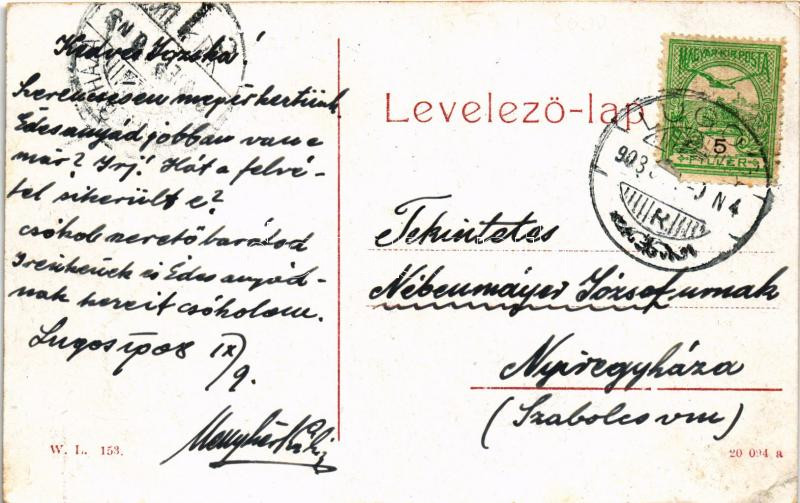 Kedves Józska!
Szerencsésen megérkeztünk.
Édesanyád jobban van e
már? Írj! Hát a felvé-
tel sikerült e?
csókol szerető barátod
Irénkének és Édesanyád-
nak kezeit csókolom.
Lugos 908 IX/9.
Levelező-lap
MAGYAR KIR. POSTA
5
LUGOS
908
N4
Tekintetes
Nébenmáyer József urnak
Nyíregyháza
(Szabolcs vm)
W. L. 153.
20 094 a